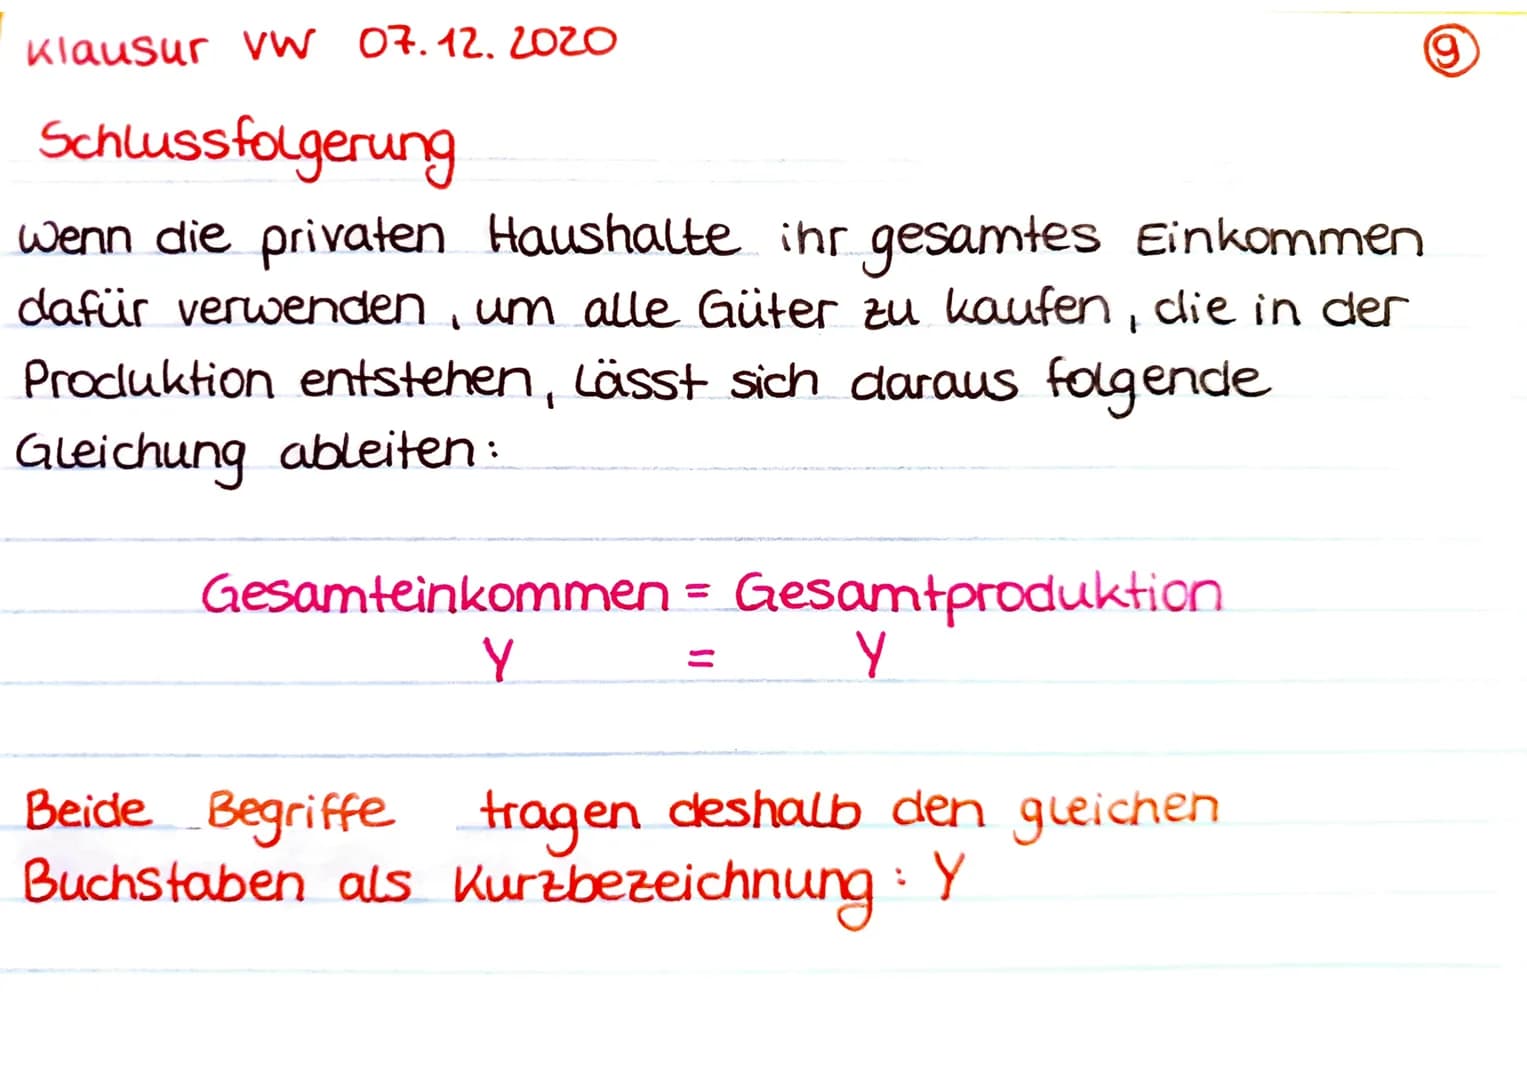 Klausur VW 07.12.2020
9
Schlussfolgerung
Wenn die privaten Haushalte ihr gesamtes Einkommen
dafür verwenden, um alle Güter zu kaufen, die in der
Produktion entstehen, lässt sich daraus folgende
Gleichung ableiten:
Gesamteinkommen = Gesamtproduktion
Y = Y
Beide Begriffe tragen deshalb den gleichen
Buchstaben als Kurzbezeichnung: Y